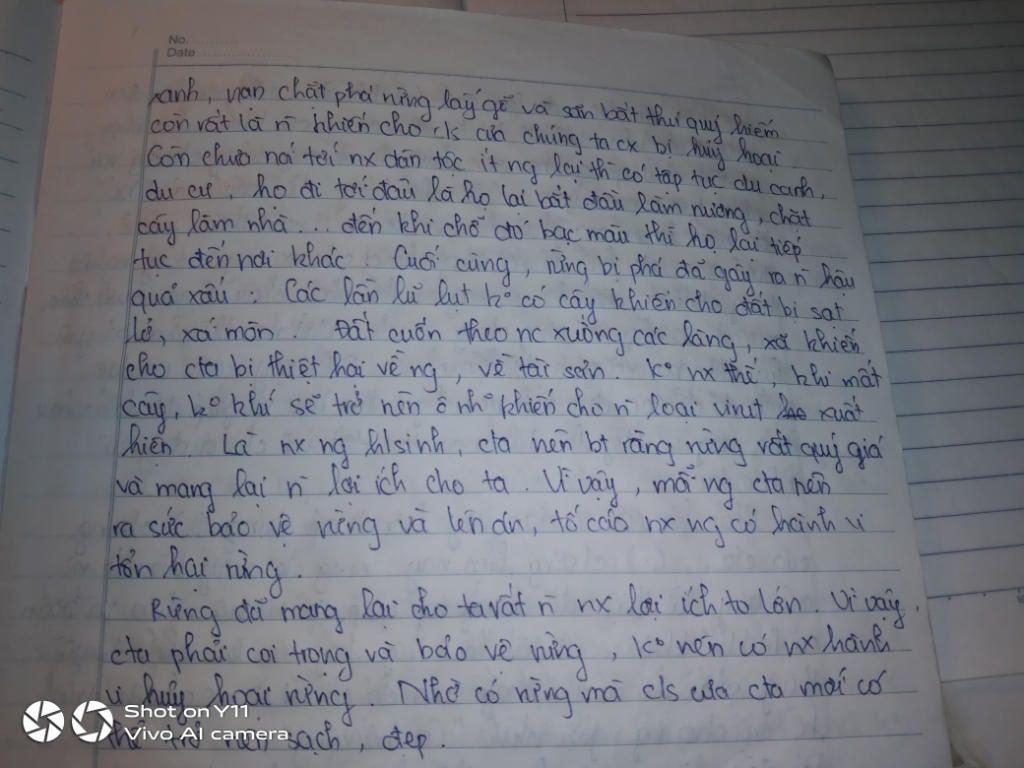 No.
Date
xanh, nạn chặt phá rừng lấy gỗ và săn bắt thú quý hiếm
còn rất là n khiến cho c/s của chúng ta cx bị hủy hoại
Còn chưa nói tới nx dân tộc ít ng lại thì có tập tục du canh,
du cư, họ đi tới đâu là họ lại bắt đầu làm nương, chặt
cây làm nhà... đến khi chỗ đó bạc màu thì họ lại tiếp
tục đến nơi khác Cuối cùng, rừng bị phá đã gây ra n hậu
quả xấu: Các lần lũ lụt ko có cây khiến cho đất bị sạt
lở, xói mòn. Đất cuốn theo nc xuống các làng, xã khiến
cho cta bị thiệt hại về ng, về tài sản. Ko nx thế, khi mất
cây, ko khí sẽ trở nên ô nh° khiến cho n loại virut xuất
hiện. Là nx ng h/sinh, cta nên bt rằng rừng rất quý giá
và mang lại n lợi ích cho ta. Vì vậy, mỗi ng cta nên
ra sức bảo vệ rừng và lên án, tố cáo nx ng có hành vi
tổn hại rừng.
Rừng đã mang lại cho ta rất n nx lợi ích to lớn. Vì vậy,
cta phải coi trọng và bảo vệ rừng, ko nên có nx hành
vi hủy hoại rừng. Nhờ có rừng mà c/s của cta mới có
thể trở nên sạch, đẹp.
Shot on Y11
Vivo AI camera